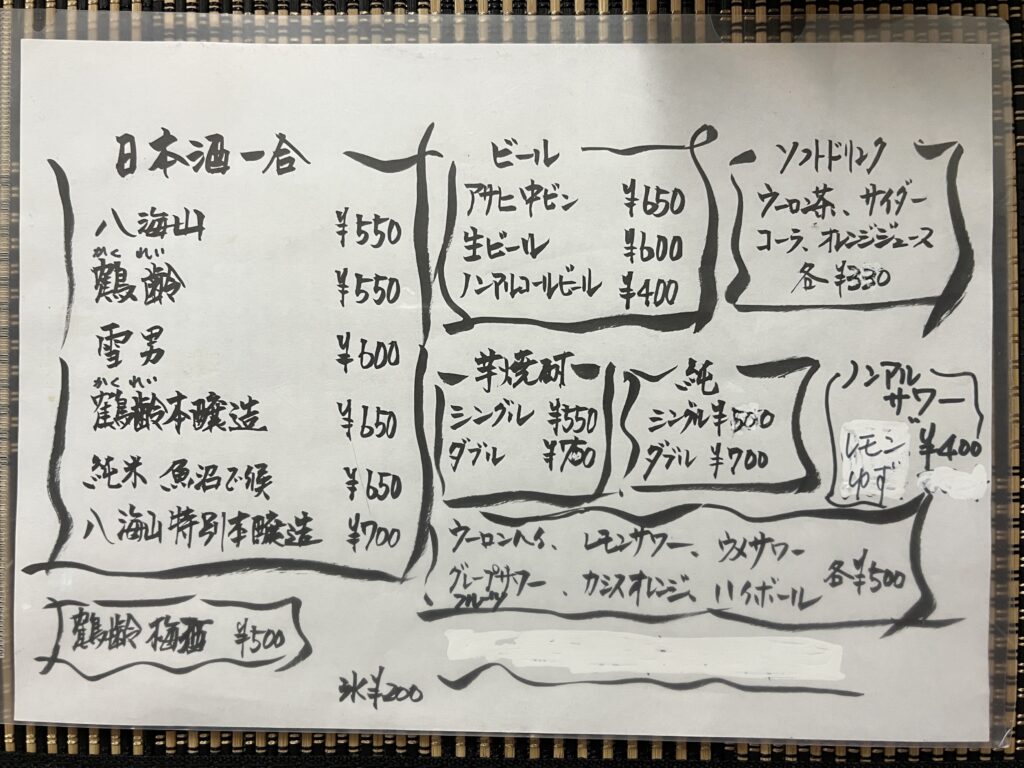 日本酒一合
八海山 ¥550
かくれい
鶴齢 ¥550
雪男 ¥600
かくれい
鶴齢本醸造 ¥650
純米 魚沼で候 ¥650
八海山特別本醸造 ¥700
鶴齢 梅酒 ¥500
氷¥200
ビール
アサヒ中ビン ¥650
生ビール ¥600
ノンアルコールビール ¥400
ソフトドリンク
ウーロン茶、サイダー
コーラ、オレンジジュース
各¥330
芋焼酎
シングル ¥550
ダブル ¥750
純
シングル ¥500
ダブル ¥700
ノンアル
サワー
レモン ¥400
ゆず
ウーロンハイ、レモンサワー、ウメサワー
グレープサワー、カシスオレンジ、ハイボール 各¥500
フルーツ